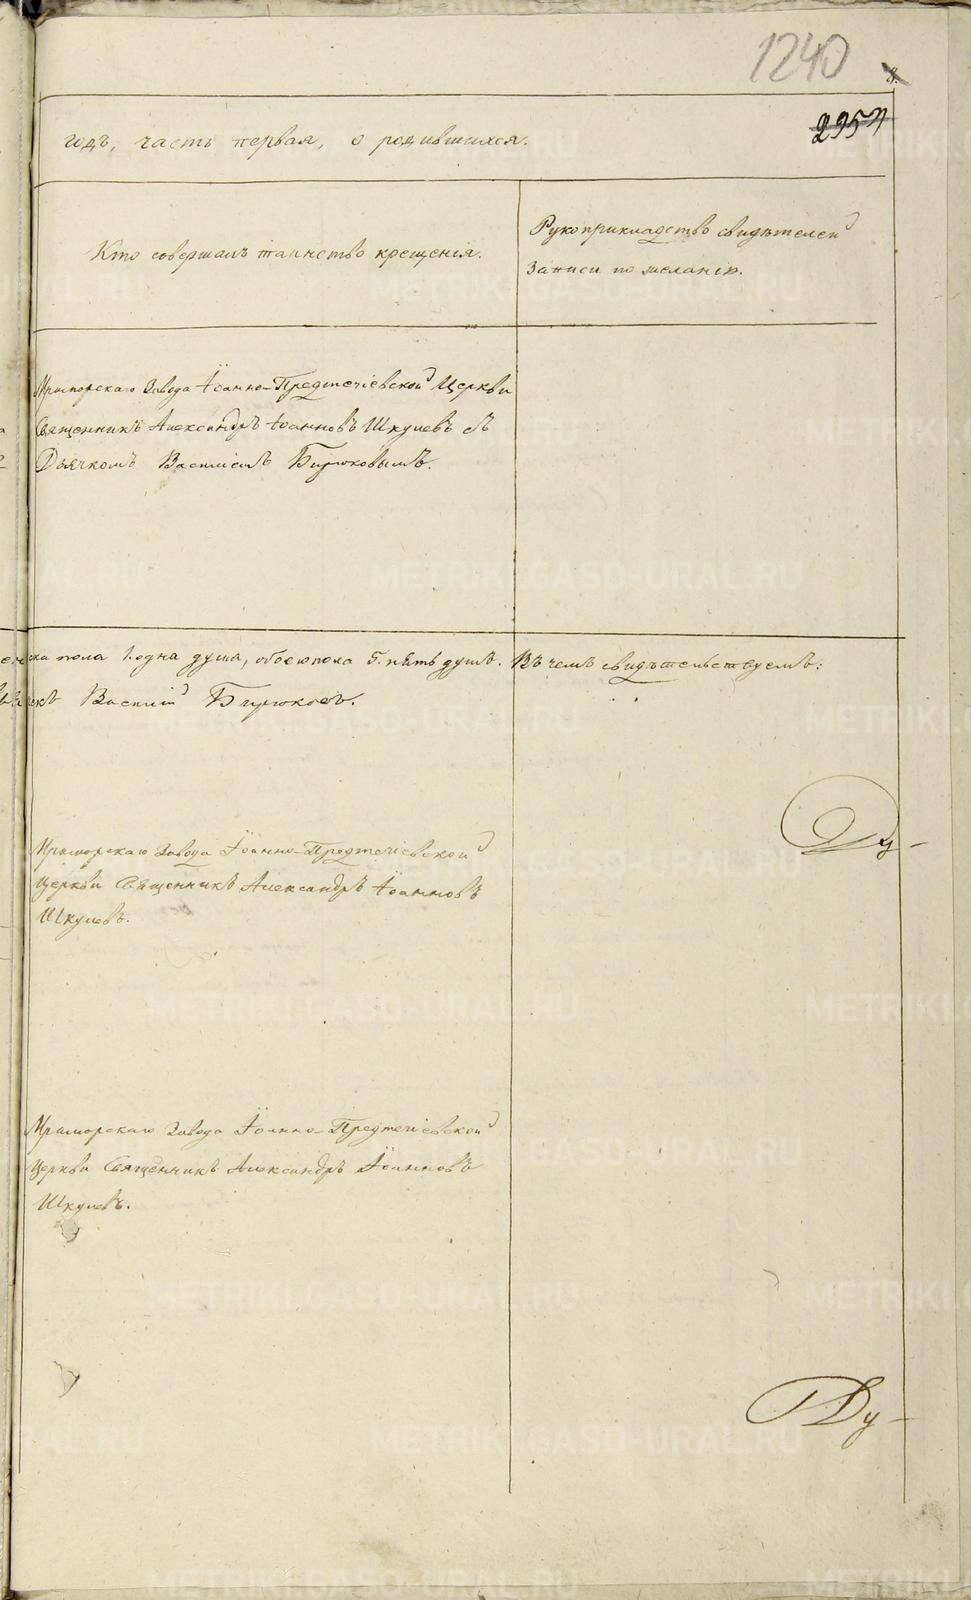 1240
8.
2957
годъ, часть первая, о родившихся.
Кто совершалъ таинство крещенія.
Рукоприкладство свидѣтелей
записи по желанію.
Мраморскаго Завода Іоанно-Предтечіевской Церкви
Священникъ Александръ Іоанновъ Шкулевъ съ
Дьячкомъ Василіемъ Бирюковымъ.
ска пола 1. одна душа, обоего пола 5. пять душъ. Въ чемъ свидѣтельствуемъ:
Василій Бирюковъ.
Ду-
Мраморскаго Завода Іоанно-Предтечіевской
Церкви Священникъ Александръ Іоанновъ
Шкулевъ.
Мраморскаго Завода Іоанно-Предтечіевской
Церкви Священникъ Александръ Іоанновъ
Шкулевъ.
Ду-
METRIKI.GASO-URAL.RU